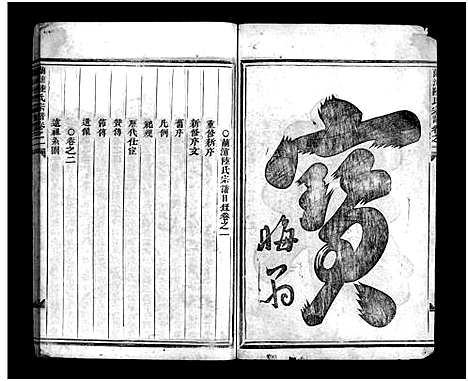 寶
晦翁
○蘭渚陸氏宗譜目錄卷之一
重修新序
新修序文
舊序
凡例
祠規
歷代仕宦
贊傳
節傳
遺像
○卷之二
遠祖系圖